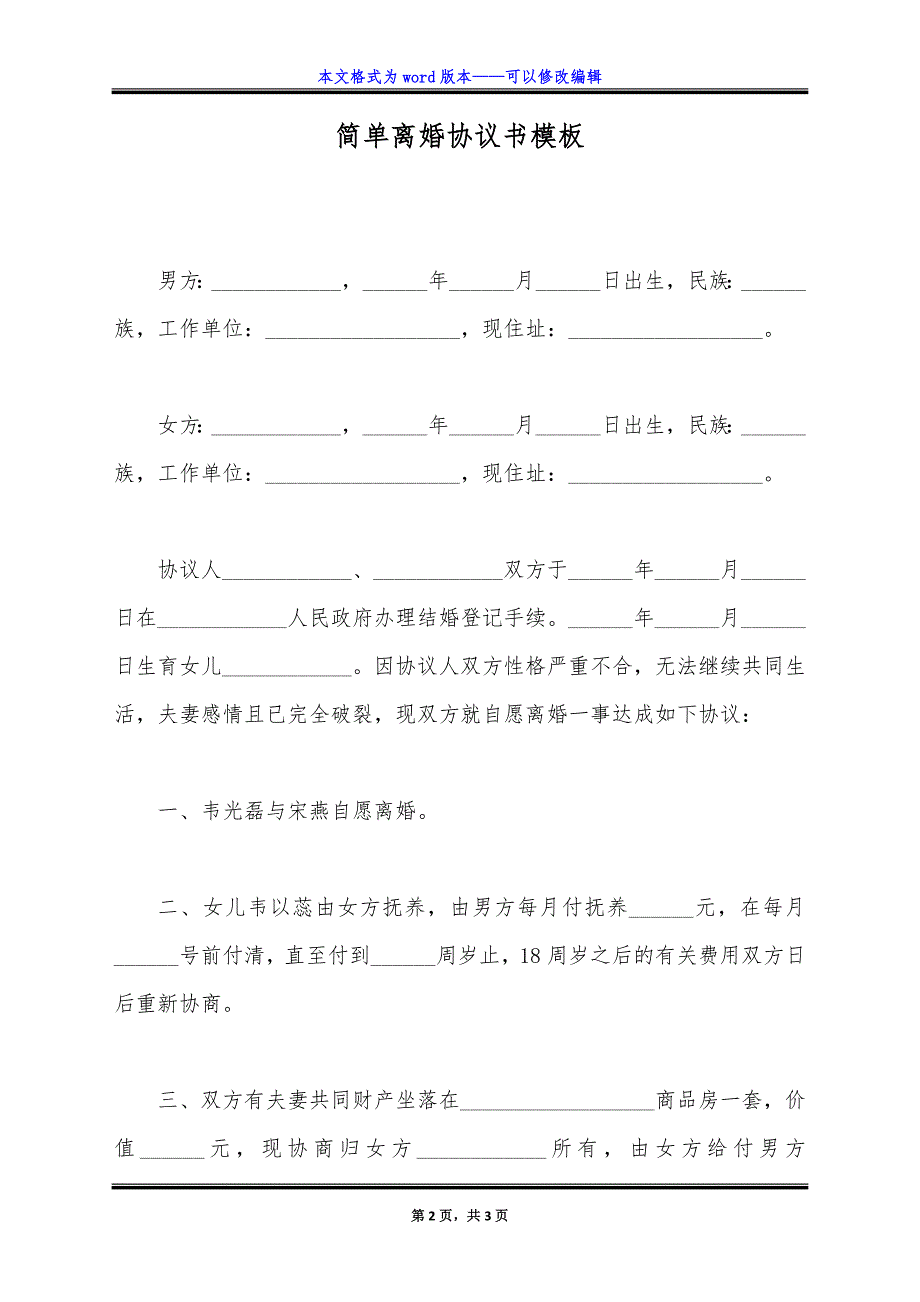 本文格式为 word 版本——可以修改编辑
简单离婚协议书模板
男方：____________，______年______月______日出生，民族：______
族，工作单位：__________________，现住址：__________________。
女方：____________，______年______月______日出生，民族：______
族，工作单位：__________________，现住址：__________________。
协议人____________、____________双方于______年______月______
日在____________人民政府办理结婚登记手续。______年______月______
日生育女儿____________。因协议人双方性格严重不合，无法继续共同生
活，夫妻感情且已完全破裂，现双方就自愿离婚一事达成如下协议：
一、韦光磊与宋燕自愿离婚。
二、女儿韦以蕊由女方抚养，由男方每月付抚养______元，在每月
______号前付清，直至付到______周岁止，18 周岁之后的有关费用双方日
后重新协商。
三、双方有夫妻共同财产坐落在__________________商品房一套，价
值______元，现协商归女方____________所有，由女方给付男方
第 2 页，共 3 页